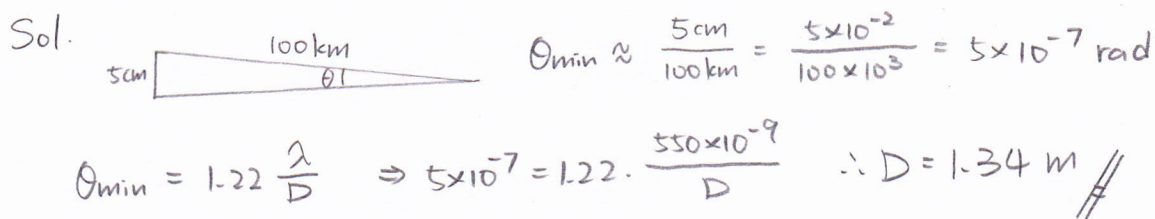 Sol.
100km
5cm
θ
θmin ≈ 5cm / 100km = 5×10⁻² / 100×10³ = 5×10⁻⁷ rad
θmin = 1.22 λ/D ⇒ 5×10⁻⁷ = 1.22 · 550×10⁻⁹ / D ∴ D = 1.34 m